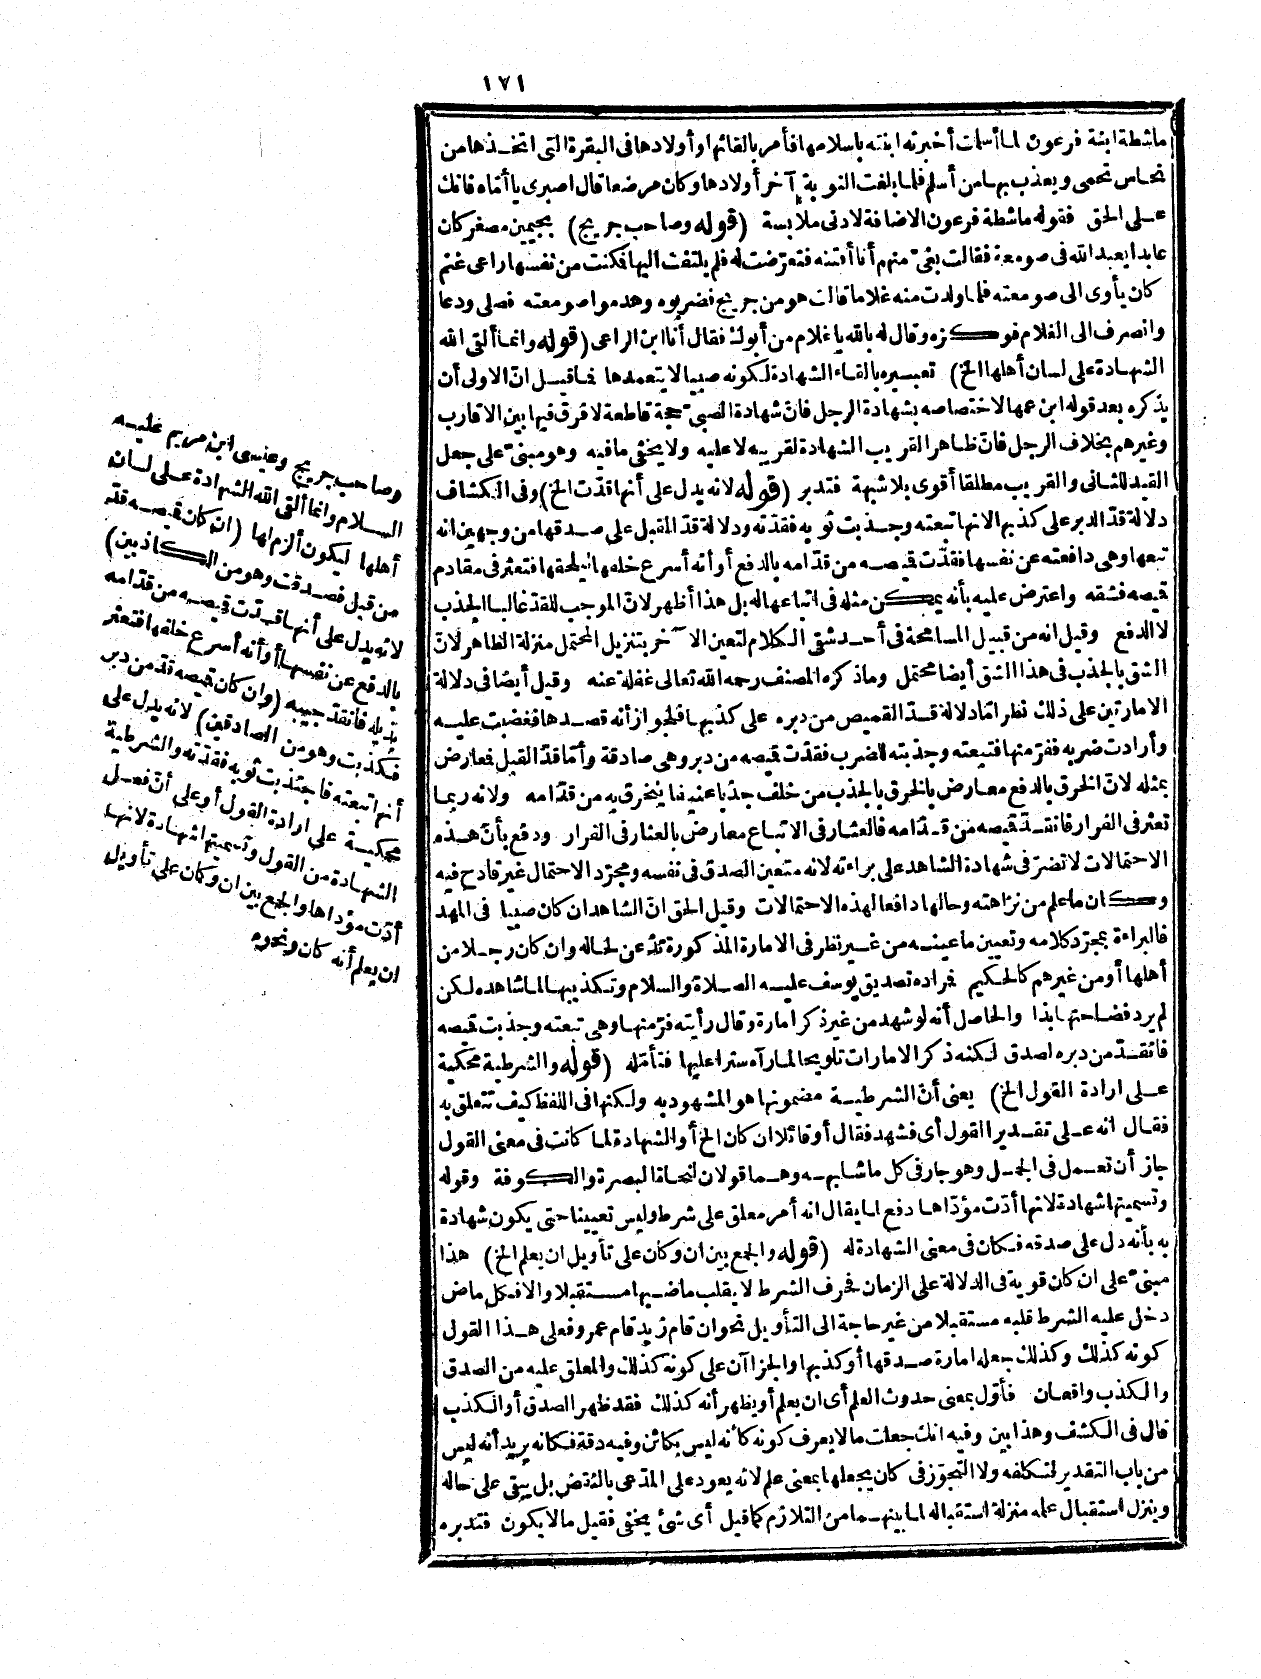 ١٧١
ماشطة ابنة فرعون لما أسلمت أخبرته ابنته باسلامها فأمر بالقائها وأولادها فى البقرة التى اتخذها من
نحاس تحمى ويعذب بها من أسلم فلما بلغت النوبة آخر أولادها وكان مرضعا قال اصبرى يا أماه فانك
على الحق فقوله ماشطة فرعون الاضافة لادنى ملابسة (قوله وصاحب جريج) بجيمين مصغر كان
عابدا يعبد الله فى صومعة فقالت بغىّ منهم أنا أفتنه فتعرّضت له فلم يلتفت اليها فمكنت من نفسها راعى غنم
كان يأوى الى صومعته فلما ولدت منه غلاما قالت هو من جريج فضربوه وهدموا صومعته فصلى ودعا
وانصرف الى الغلام فوكزه وقال له بالله يا غلام من أبوك فقال أنا ابن الراعى (قوله وانما ألقى الله
الشهادة على لسان أهلها الخ) تعبيره بالقاء الشهادة لكونه صبيا لا يتعمدها فما قيل انّ الاولى أن
يذكره بعد قوله ابن عمها لاختصاصه بشهادة الرجل فانّ شهادة الصبىّ حجة قاطعة لا فرق فيها بين الاقارب
وغيرهم بخلاف الرجل فانّ ظاهر القريب الشهادة لقريبه لا عليه ولا يخفى ما فيه وهو مبنىّ على جعل
القيد للثانى والقريب مطلقا أقوى بلا شبهة فتدبر (قوله لانه يدل على أنها قدّت الخ) وفى الكشاف
دلالة قدّ الدبر على كذبها لانها تبعته وجذبت ثوبه فقدّته ودلالة قدّ القبل على صدقها من وجهين انه
تبعها وهى دافعته عن نفسها فقدّت قميصه من قدّامه بالدفع أو أنه أسرع خلفها ليلحقها فتعثر فى مقادم
قميصه فشقه واعترض عليه بأنه يمكن مثله فى اتباعها له بل هذا أظهر لانّ الموجب للقدّ غالبا الجذب
لا الدفع وقيل انه من قبيل المسامحة فى أحد شقى الكلام لتعين الآخر بتنزيل المحتمل منزلة الظاهر لانّ
الشق بالجذب فى هذا الشق أيضا محتمل وما ذكره المصنف رحمه الله تعالى غفلة عنه وقيل أيضا فى دلالة
الامارتين على ذلك نظر امّا دلالة قدّ القميص من دبره على كذبها فلجواز أنه قصدها فغضبت عليه
وأرادت ضربه ففرّ منها فتبعته وجذبته للضرب فقدّت قميصه من دبر وهى صادقة وأمّا قدّ القبل فعارض
بمثله لانّ الخرق بالدفع معارض بالخرق بالجذب من خلف جذبا عنيفا ينخرق به من قدّامه ولانه ربما
تعثر فى الفرار فانقدّ قميصه من قدّامه فالعثار فى الاتباع معارض بالعثار فى الفرار ودفع بأنّ هذه
الاحتمالات لا تضرّ فى شهادة الشاهد على براءته لانه متعين الصدق فى نفسه ومجرّد الاحتمال غير قادح فيه
وكان ما علم من نزاهته وحالها دافعا لهذه الاحتمالات وقيل الحق انّ الشاهد ان كان صبيا فى المهد
فالبراءة بمجرّد كلامه وتعيين ما عينه من غير نظر فى الامارة المذكورة تدّعن لحاله وان كان رجلا من
أهلها أو من غيرهم كالحكيم فمراده تصديق يوسف عليه الصلاة والسلام وتكذيبها لما شاهده لكن
لم يرد فضاحتها بذا والحاصل أنه لو شهد من غير ذكر امارة وقال رأيته فرّ منها وهى تبعته وجذبت قميصه
فانقدّ من دبره لصدق لكنه ذكر الامارات تلويحا لما رآه سترا عليها فتأمّله (قوله والشرطية محكية
على ارادة القول الخ) يعنى أنّ الشرطية مضمونها هو المشهود به ولكنها فى اللفظ كيف تتعلق به
فقال انه على تقدير القول أى فشهد فقال أو قائلا ان كان الخ أو الشهادة لما كانت فى معنى القول
جاز أن تعمل فى الجمل وهو جار فى كل ما شابهه وهما قولان لنحاة البصرة والكوفة وقوله
وتسميتها شهادة لانها أدّت مؤدّاها دفع لما يقال انه أمر معلق على شرط وليس تعيينا حتى يكون شهادة
به بأنه دل على صدقه فكان فى معنى الشهادة له (قوله والجمع بين ان وكان على تأويل ان يعلم الخ) هذا
مبنىّ على ان كان قوية فى الدلالة على الزمان فحرف الشرط لا يقلب ماضيها مستقبلا والا فكل ماض
دخل عليه الشرط قلبه مستقبلا من غير حاجة الى التأويل نحو ان قام زيد قام عمرو فعلى هذا القول
كونه كذلك وكذلك جعله امارة صدقها أو كذبها والجزاآن على كونه كذلك والمعلق عليه من الصدق
والكذب واقعان فأوّل بمعنى حدوث العلم أى ان يعلم أو يظهر أنه كذلك فقد ظهر الصدق أو الكذب
قال فى الكشف وهذا بين وفيه انك جعلت ما لا يعرف كونه كأنه ليس بكائن وفيه دقة فكانه يريد أنه ليس
من باب التقدير لتكلفه ولا التجوّز فى كان بجعلها بمعنى علم لانه يعود على المدّعى بالنقض بل يبقى على حاله
وينزل استقبال علمه منزلة استقباله لما بينهما من التلازم كما قيل أى شئ يخفى فقيل ما لا يكون فتدبره
وصاحب جريج وعيسى ابن مريم عليه
السلام وانما ألقى الله الشهادة على لسان
أهلها ليكون ألزم لها (ان كان قميصه قدّ
من قبل فصدقت وهو من الكاذبين)
لانه يدل على أنها قدّت قميصه من قدّامه
بالدفع عن نفسها أو أنه أسرع خلفها فتعثر
بذيله فانقد جيبه (وان كان قميصه قدّ من دبر
فكذبت وهو من الصادقين) لانه يدل على
أنها تبعته فاجتذبت ثوبه فقدّته والشرطية
محكية على ارادة القول أو على أنّ فعل
الشهادة من القول وتسميتها شهادة لانها
أدّت مؤدّاها والجمع بين ان وكان على تأويل
ان يعلم أنه كان ونحوه